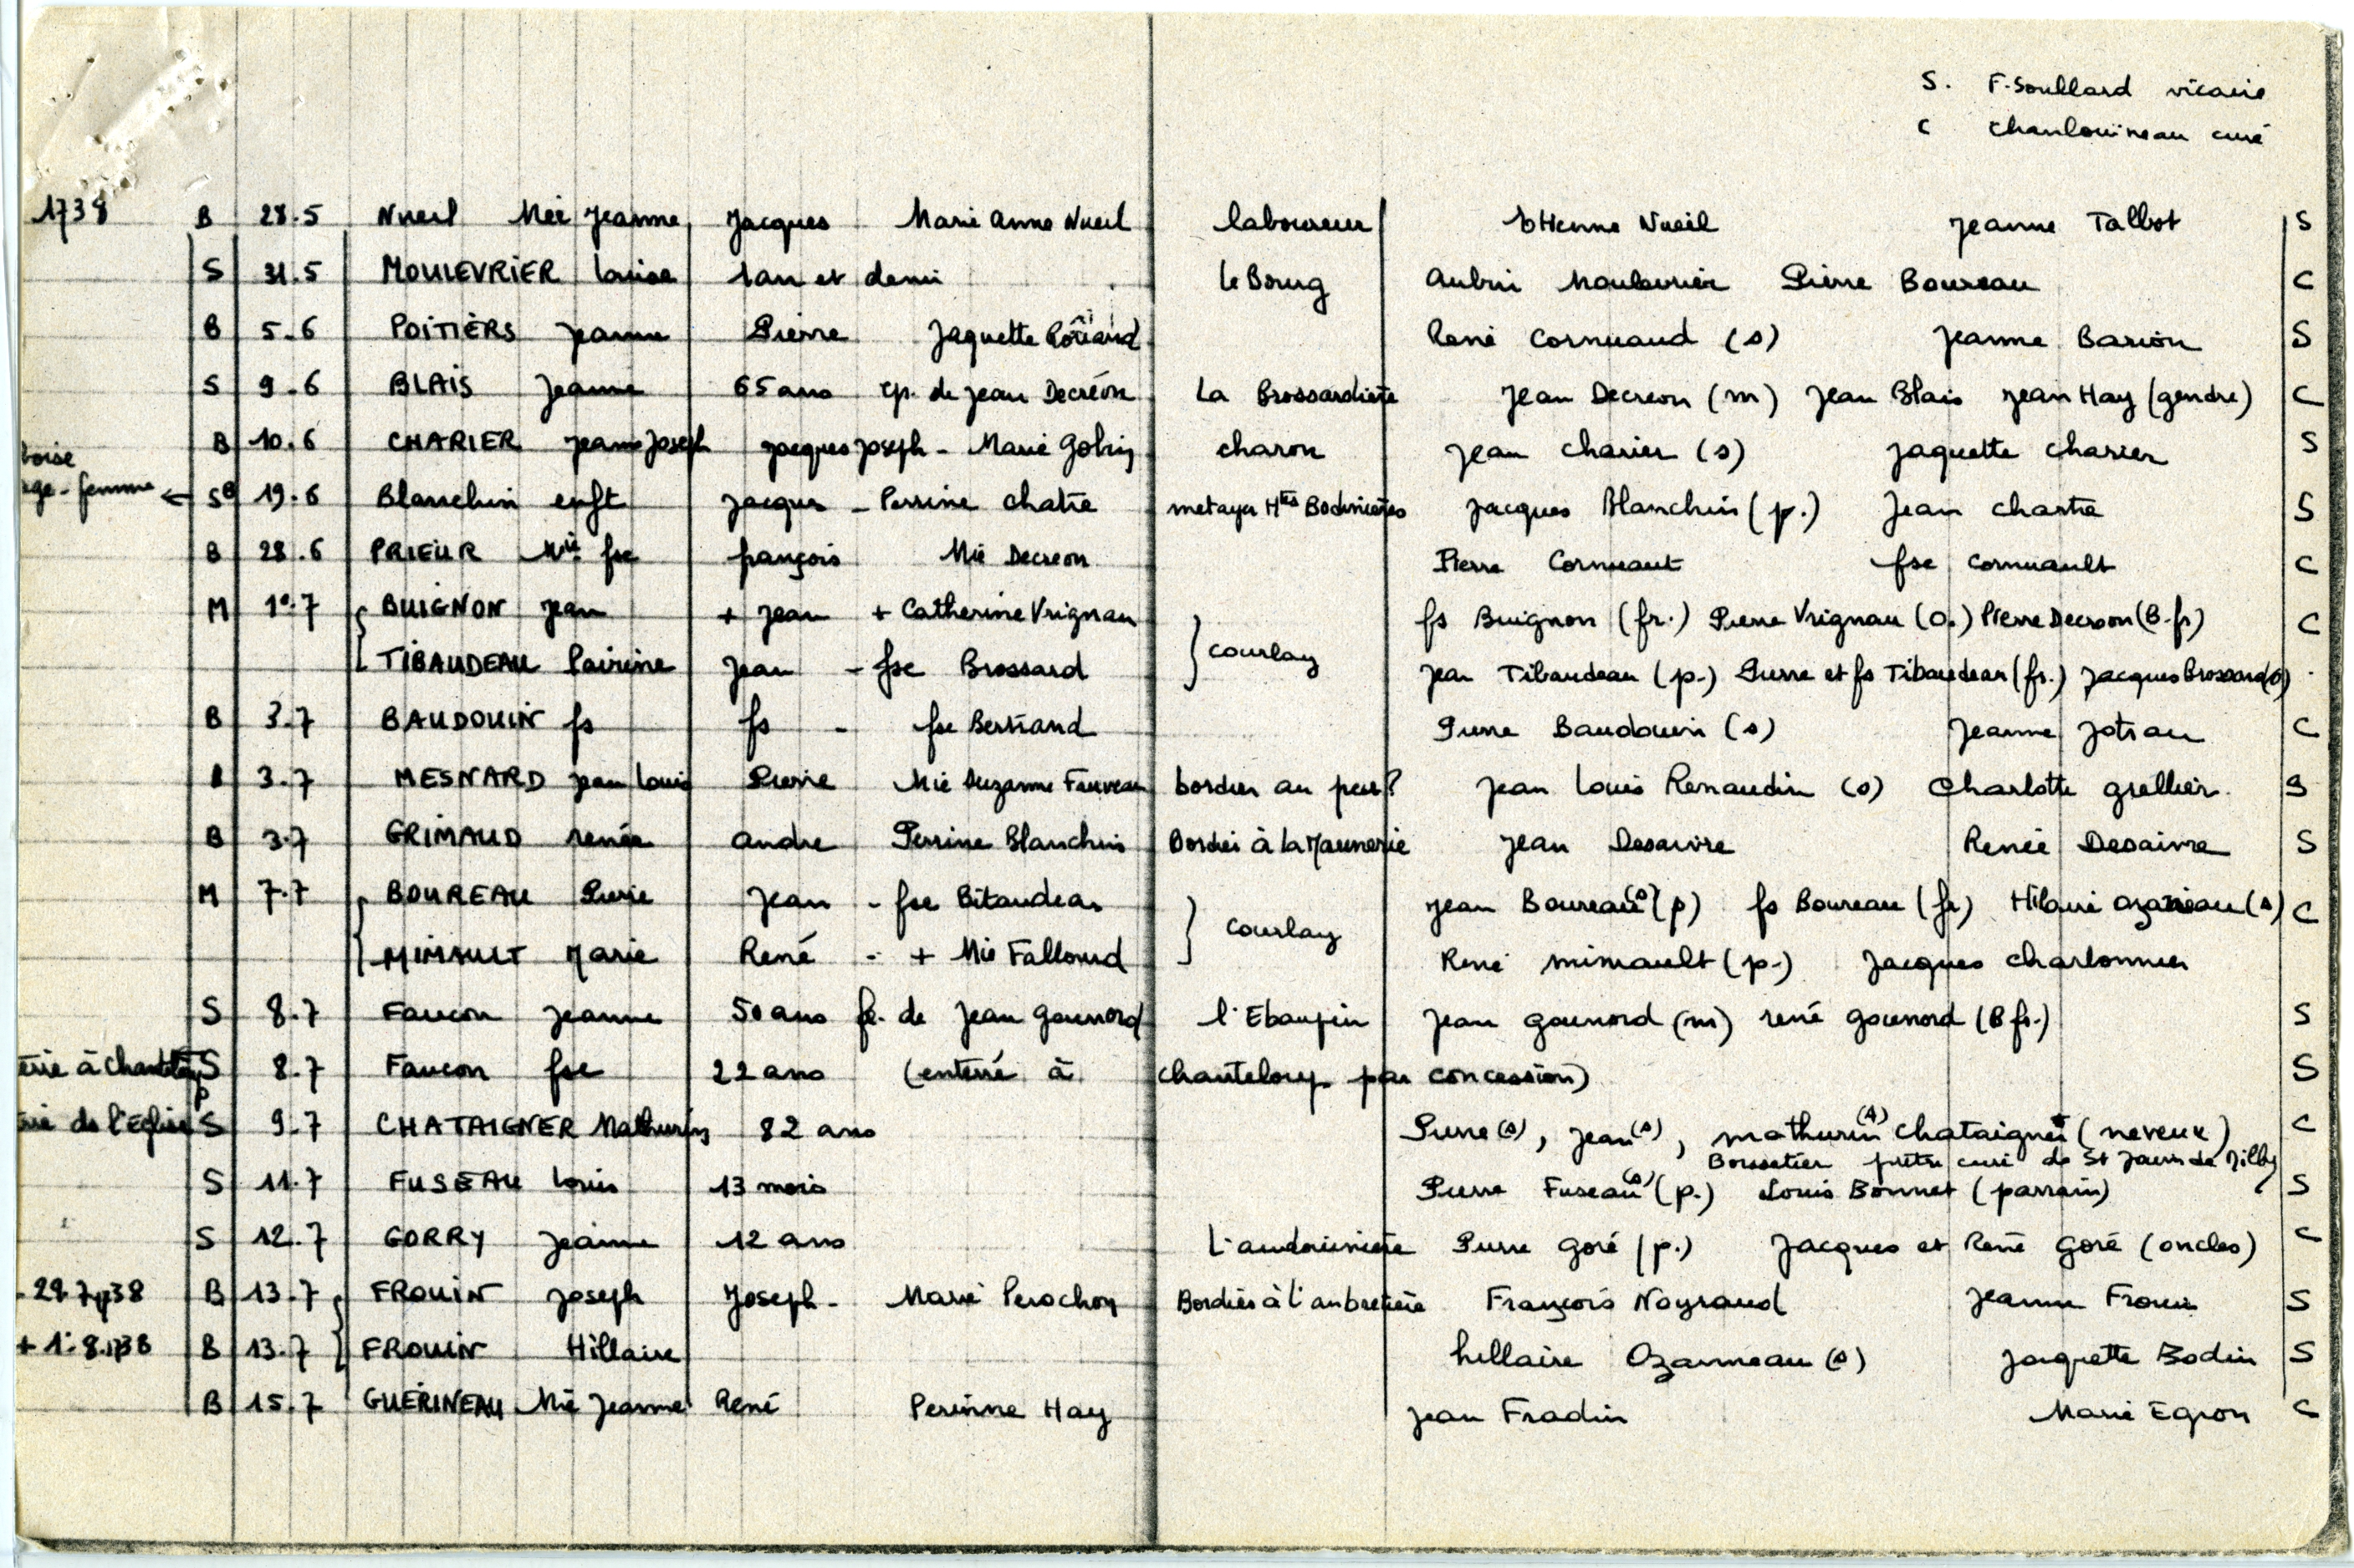 S. F. Soullard vicaire
C Chanlouineau curé
1738 B 28.5 Nueil Mie Jeanne Jacques Marie Anne Nueil laboureur Etienne Nueil Jeanne Talbot S
S 31.5 MOULEVRIER Louise 1 an et demi le Bourg Aubin Moulevrier Pierre Boureau C
B 5.6 POITIERS Jeanne Pierre Jaquette René Cornuaud (s) Jeanne Barion S
S 9.6 BLAIS Jeanne 65 ans ep. de Jean Decréon La Brossardière Jean Decreon (m) Jean Blais Jean Hay (gendre) C
B 10.6 CHARIER Jeanne Joseph Jacques Joseph - Marie Gobin charon Jean Charier (s) Jaquette Charier S
boise
age-femme ← SB 19.6 Blanchin enft Jacques - Perrine Chatre metayer Htes Bodinieres Jacques Blanchin (p.) Jean Chartre S
B 28.6 PRIEUR Mie fse françois Mie Decreon Pierre Cornuaut fse Cornuault C
M 1°.7 BUIGNON Jean + Jean + Catherine Vrignau fs Buignon (fr.) Pierre Vrignau (o.) Pierre Decreon (B.fr) C
TIBAUDEAU Perrine Jean - fse Brossard courlay Jean Tibaudeau (p.) Pierre et fs Tibaudeau (fr.) Jacques Brossard (o)
B 3.7 BAUDOUIN fs fs - fse Bertrand Pierre Baudouin (s) Jeanne Jotrau C
B 3.7 MESNARD Jean Louis Pierre Mie Suzanne Fauveau bordier au peux? Jean Louis Renaudin (s) Charlotte grellier S
B 3.7 GRIMAUD renée andre Perrine Blanchin Bordier à la Maunerie Jean Desaivre Renée Desaivre S
M 7.7 BOUREAU Pierre Jean - fse Bitaudeau Jean Boureau (s) (p) fs Boureau (fr) Hilaire Ozanneau (s) C
MIMAULT Marie René - + Mie Fallourd courlay René mimault (p.) Jacques Charbonnier
S 8.7 Faucon Jeanne 50 ans fe. de Jean Gounord l'Ebaupin Jean gounord (m) rené gounord (B fr.) S
terré à Chanteloup S 8.7 Faucon fse 22 ans (enterré à chanteloup par concession) S
de l'Eglise S 9.7 CHATAIGNER Mathurin 82 ans Pierre (s), Jean (s), mathurin (s) chataigner (neveux) C
prêtre curé de St
S 11.7 FUSEAU Louis 13 mois Pierre Fuseau (s) (p.) Louis Bonnet (parrain) S
S 12.7 GORRY Jeanne 12 ans Pierre Goré (p.) Jacques et René Goré (oncles) C
29.7.38 B 13.7 FROUIN Joseph Joseph - Marie Perochon Bordier à l'aubretiere François Nayraud Jeanne Frouin S
+ 1°.8.38 B 13.7 FROUIN Hillaire hillaire Ozanneau (s) Jaquette Bodin S
B 15.7 GUERINEAU Mie Jeanne René Perinne Hay Jean Fradin Marie Egron C